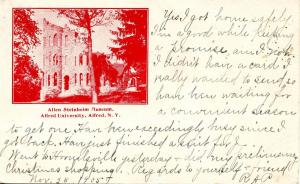 Allen Steinheim Museum,
Alfred University, Alfred, N. Y.
Yes I got home safely
in a good while
a promise, and I
didn't have a card I
really wanted to send so
have been waiting for
a convenient season
to get one. Have been exceedingly busy since I
got back. Have just finished a suit for
Went to yesterday & did my preliminary
Christmas shopping. Regards to yourself & friend
Nov. 1905